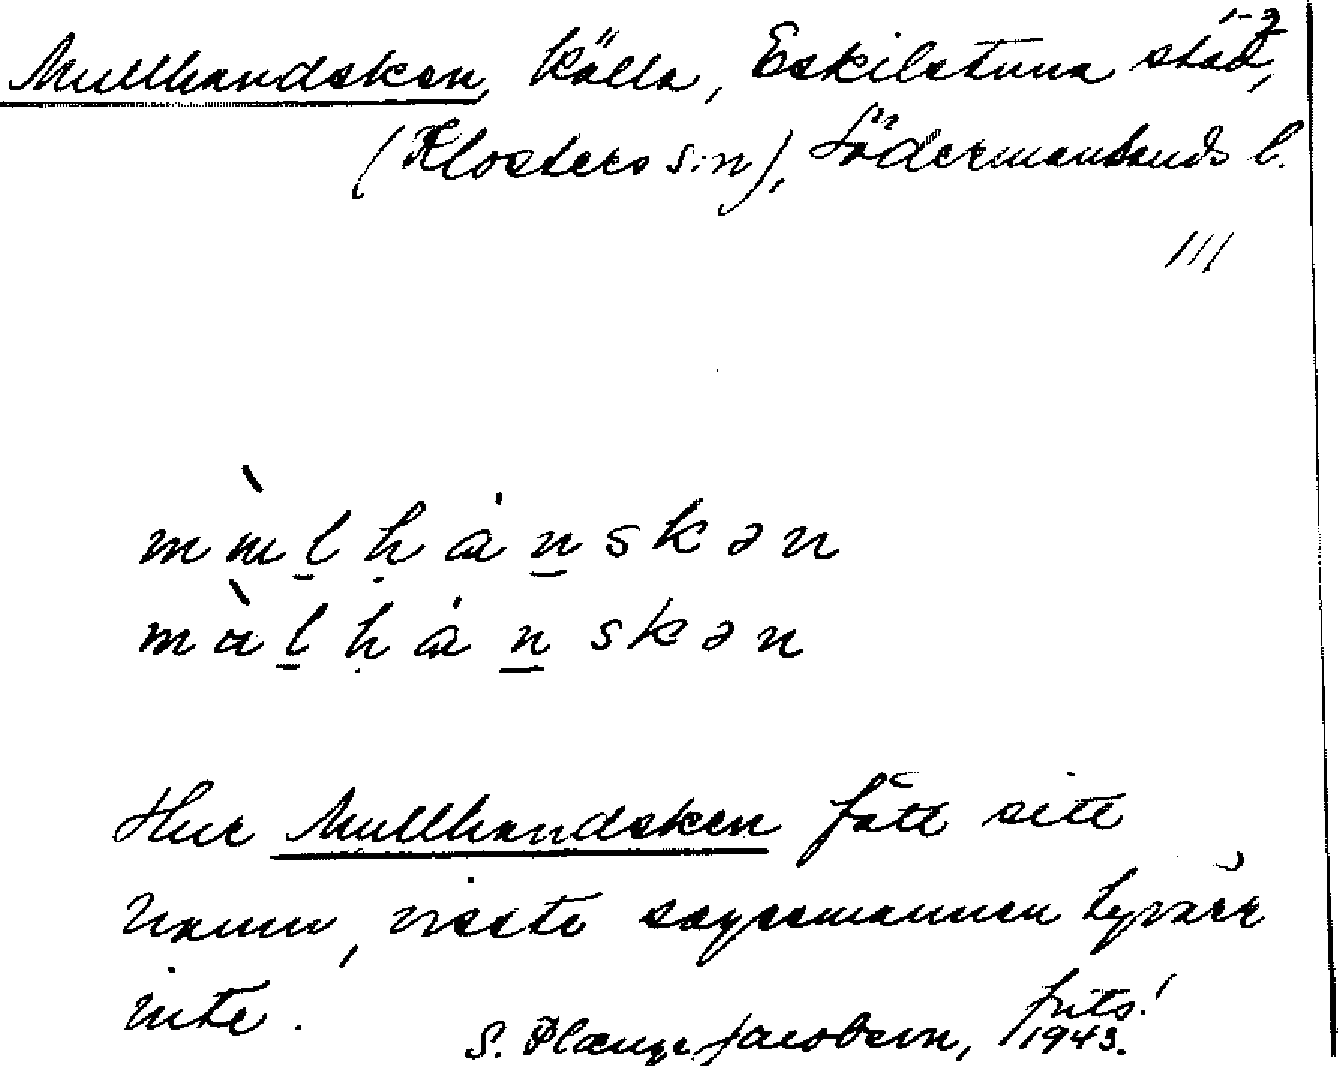 Mullhandsken, källa, Eskilstuna stad,
(Klosters s:n), Södermanlands l.
///
mùl̠ḥán̠skən
màl̠ḥán̠skən
Hur Mullhandsken fått sitt
namn, visste sagesmannen tyvärr
inte.
S. Jacobson, 1943.